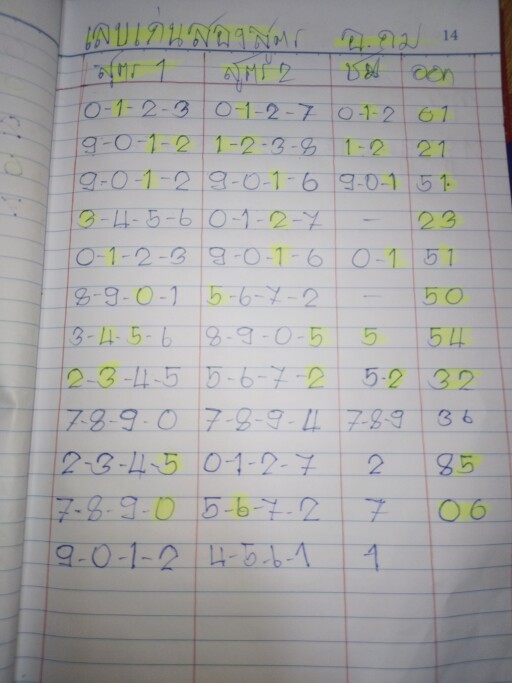 เลขเด่นสองสูตร 14
สูตร 1 สูตร 2 ชน ออก
0-1-2-3 0-1-2-7 0-1-2 61
9-0-1-2 1-2-3-8 1-2 21
9-0-1-2 9-0-1-6 9-0-1 51
3-4-5-6 0-1-2-7 - 23
0-1-2-3 9-0-1-6 0-1 51
8-9-0-1 5-6-7-2 - 50
3-4-5-6 8-9-0-5 5 54
2-3-4-5 5-6-7-2 5-2 32
7-8-9-0 7-8-9-4 7-8-9 36
2-3-4-5 0-1-2-7 2 85
7-8-9-0 5-6-7-2 7 06
9-0-1-2 4-5-6-1 1